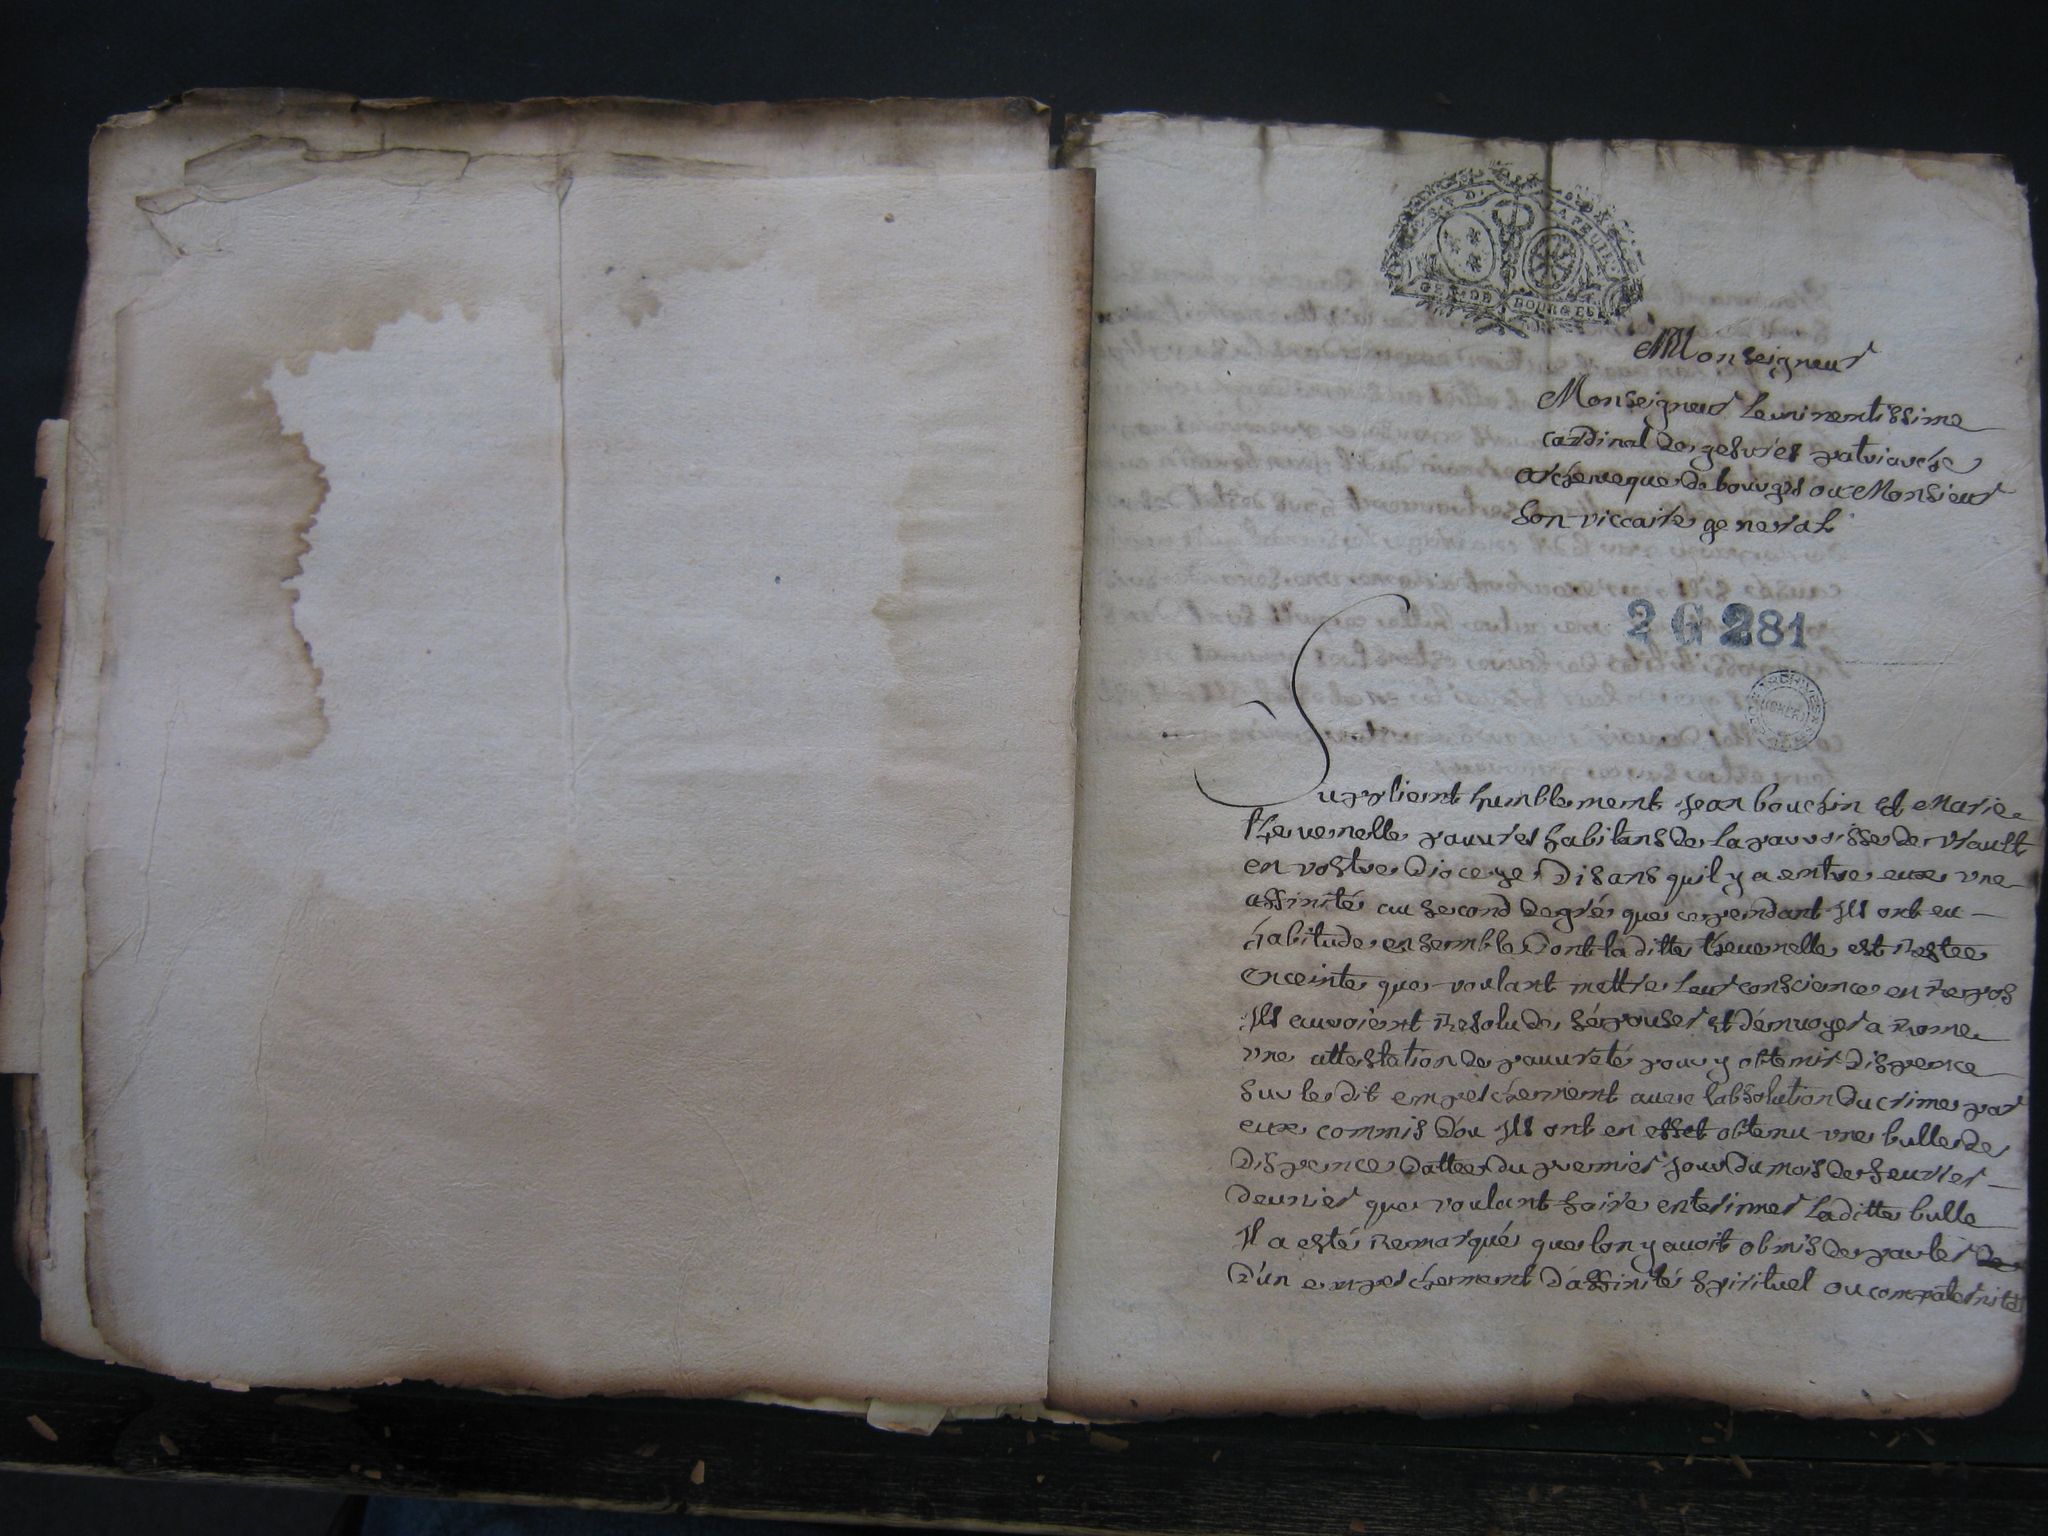 GEN DE BOURGES
Monseigneur
Monseigneur Leminentissime
cardinal de gesvres patriarche
archeveque de bourges ou Monsieur
son viccaire general
2 G 281
ARCHIVES
CHER
Suplient humblement jean bouchin et Marie
thevenelle pauvres habitans de la parroisse de
en vostre dioceze disans quil y a entre eux vne
affinité au second degré que cependant Ils ont eu
habitude ensemble dont la ditte thevenelle est Restee
enceinte que voulant mettre leur conscience en Repos
Ils auroient Resolu de sépouser et dénvoyer a Rome
vne attestation de pauureté pour y obtenir dispence
sur le dit empeschement auec labsolution du crime par
eux commis dou Ils ont en effet obtenu vne bulle de
dispence dattee du premier jour du mois de feurier
dernier que voulant faire enteriner laditte bulle
Il a esté Remarqué que lon y auoit obmis de parler de
d'un empeschement d'affinité spirituel ou compaternité